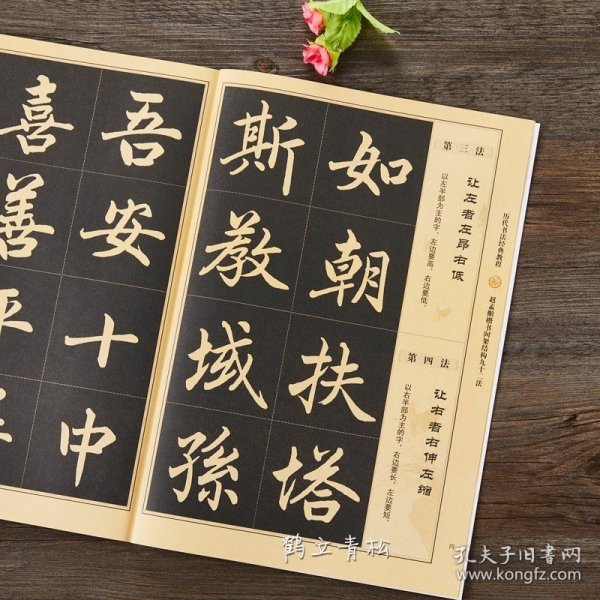 历代书法经典教程
赵孟頫楷书间架结构九十二法
第三法
让左者左昂右低
以左半部为主的字，左边要高，右边要低。
第四法
让右者右伸左缩
以右半部为主的字，右边要长，左边要短。
如朝扶塔
斯教域孫
吾安十中
喜善平
鹤立青松
孔夫子旧书网
www.kongfz.com